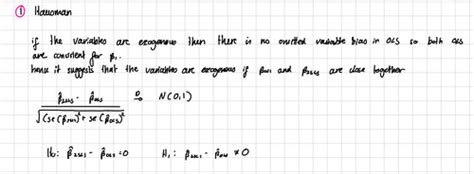 ① Hausman
if the variables are exogenous then there is no omitted variable bias in OLS so both are
are consistent for β₁.
hence it suggests that the variables are exogenous if β̂OLS and β̂2SLS are close together
β̂2SLS - β̂OLS
√(se(β̂2SLS)² + se(β̂OLS)²) →D N(0,1)
H₀: β̂2SLS - β̂OLS = 0 H₁: β̂2SLS - β̂OLS ≠ 0